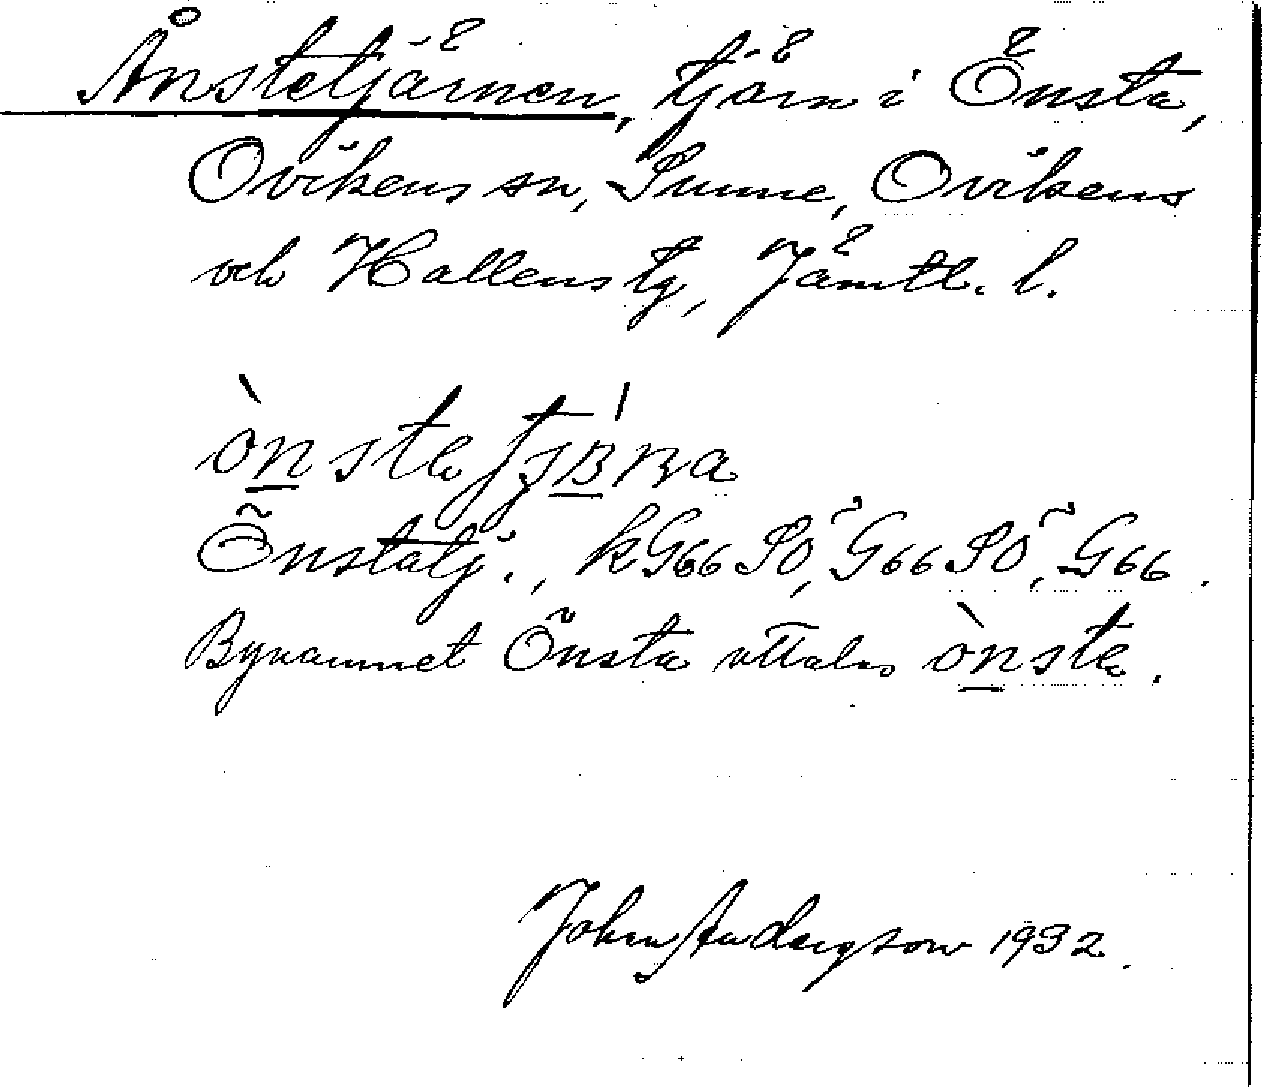 Ånstetjärnen, tjärn i Önsta,
Ovikens sn, Sunne, Ovikens
och Hallens tg, Jämtl. l.
Önstatj., kG66SÖ, G66SÖ, G66.
Bynamnet Önsta uttalas ònste.
John Anderson 1932.